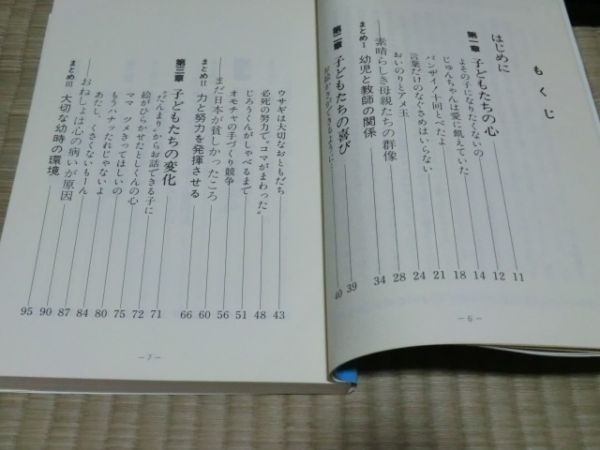 もくじ
はじめに
第一章 子どもたちの心 11
よその子になりたくないの 12
じゅんちゃんは愛に飢えていた 14
バンザイ!七回とべたよ 18
言葉だけのなぐさめはいらない 21
おいのりとアメ玉 24
―素晴らしき母親たちの群像 28
まとめⅠ 幼児と教師の関係 34
第二章 子どもたちの喜び 39
40
―6―
ウサギは大切なおともだち 43
必死の努力で“コマがまわった” 48
じろうくんがしゃべるまで 51
オモチャの手づくり競争 56
―まだ日本が貧しかったころ 60
まとめⅡ 力と努力を発揮させる 66
第三章 子どもたちの変化 71
“だんまり”からお話できる子に 72
絵がひらかせたとしくんの心 75
ママ ツメきってほしいの 80
もうハナッたれじゃないよ 84
あたし、くさくないもーん 87
―おねしょは心の病いが原因 90
まとめⅢ 大切な幼時の環境 95
―7―